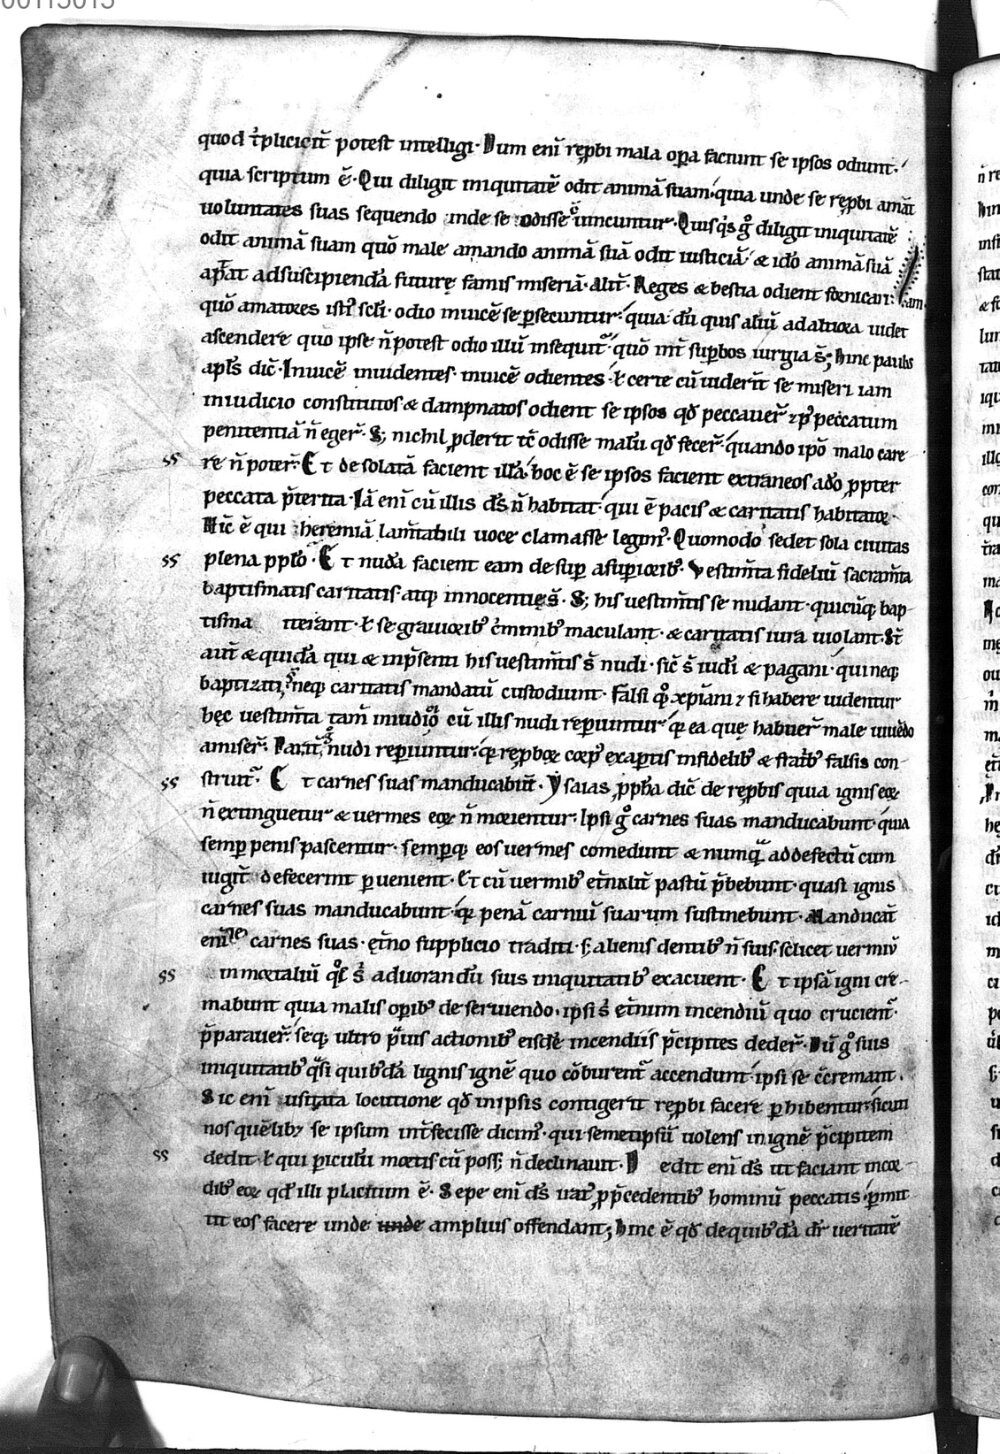 00115015
quod t̾pliciͭ potest intelligi· Dum eni̅ rep̱bi mala op̱a faciunt se ipsos odiunt·
quia scriptum e̅· Qui diligit iniquitate̅ odit anima̅ suam· quia unde se rep̱bi amãt
uoluntates suas sequendo inde se odisse ͦuincuntur· Quisq̾s gͦ diligit iniquitate̅
odit anima̅ suam quo̅ male amando anima̅ sua̅ odit iusticia̅· & ido̅ anima̅ sua̅
ap̅tat adsuscipienda̅ future̜ famis miseria̅· alit̅· Reges & bestia odient fornicari: eam
quo̅ amatores isti̾ sc̅li· odio inuice̅ se p̱secuntur· quia du̅ quis aliu̅ ad altiora uidet
ascendere quo ipse n̅ potest odio illu̅ insequit̾· quo̅ int̅ sup̱bos iurgia s̅; hinc paulus
apl̅s dic̅· Inuice̅ inuidentes· inuice̅ odientes· ł certe cu̅ uideri̅t se miseri iam
iniudicio constitutos & dampnatos odient se ipsos qd̅ peccauer̅ ⁊ p̱ peccatum
penitentia̅ n̅ eger̅· S; nichil p̱derit tc̅ odisse malu̅ qd̅ fecer̅· quando ip̅o malo care
ss re n̅ poter̅· Et desolata̅ facient illa̅· hoc e̅ se ipsos facient extraneos a do̅ p̱pter
peccata p̅terita· Ia̅ eni̅ cu̅ illis d̅s n̅ habitat· qui e̅ pacis & caritatis habitator·
Hic̅ e̅ qui heremia̅ lam̅tabili uoce clamasse legim̾· Quomodo sedet sola ciuitas
ss plena pp̅lo· Et nuda̅ facient eam desup̱ asup̱iorib̾· Vestim̅ta fideliu̅ sacram̅ta
baptismatis caritatis· atq̱ innocentie̜ s̅· S; his uestim̅tis se nudant· quicu̅q̱ bap
tisma iterant· ł se grauiorib̾ c̾minib̾ maculant· & caritatis iura uiolant· St̅
aut̅ & quida̅ qui & inp̅senti his uestim̅tis s̅ nudi· sic̅ s̅ iudi̅ & pagani· qui neq̱
baptizati s̅ neq̱ caritatis mandatu̅ custodiunt· falsi qͦ xp̅iani ⁊ si habere uidentur
he̜c uestim̅ta tam̅ iniudico̅ cu̅ illis nudi rep̱iuntur· q̱ ea que̜ habuer̅ male uiue̅do
amiser̅· Parit̅ nudi rep̱iuntur· q̱ rep̱boꝝ corp̾ exap̱tis infidelib̾ & statib̾ falsis con
ss struit̾· Et carnes suas manducabu̅t· Ysaias p̱ph̅a dic̅ de rep̱bis quia ignis eoꝝ
n̅ extinguetur & uermes eoꝝ n̅ morientur· Ipsi gͦ carnes suas manducabunt· quia
semp̱ penis pascentur· semp̱q̱ eos uermes comedunt & numq̅ ad defectu̅ cum
iugit̾ defecerint p̱uenient· Et cu̅ uermib̾ et̅naliu̅ pastu̅ p̅bebunt· quasi ignis
carnes suas manducabunt· q̱ pena̅ carniu̅ suarum sustinebunt· Manducãt
eni̅ carnes suas· et̅no supplicio traditi· s; alienis dentib̾ n̅ suis· scilicet uermiu̅
ss inmortaliu̅ qͦs s̅ aduoranda̅ suis iniquitatib̾ exacuent· Et ipsa̅ igni cre-
mabunt quia malis op̱ib̾ deseruiendo· ipsi s̾ et̅num incendiu̅ quo crucient̾·
p̅parauer̅· seq̱ ultro p̾uis actionib̾ eisde̅ incendiis p̅cipites deder̅· Du̅ gͦ suis
iniquitatib̾ q̾si quib̾da̅ lignis igne̅ quo co̅burent̾ accendunt· ipsi se c̅cremant·
Sic eni̅ usitata locutione qd̅ inipsis contigerit rep̱bi facere p̱hibentur· sicuti
nos que̅lib; se ipsum int̅fecisse dicim̾· qui semetipsu̅ uolens in igne̅ p̅cipitem
ss dedit· ł qui p̱iculu̅ mortis cu̅ poss; n̅ declinauit· Dedit eni̅ d̅s ut faciant incor-
dib̾ eoꝝ qd̅ illi placitum e̅· Sepe eni̅ d̅s p̱ p̅cedentib̾ hominu̅ peccatis· p̱mit
tit eos facere unde unde amplius offendant; hinc e̅ qd̅ dequib̾da̅ dr̅ ueritate̅